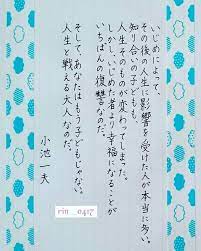 いじめによって、
その後の人生に影響を受けた人が本当に多い。
知り合いの子どもも、
人生そのものが変わってしまった。
しかし、いじめた者より幸福になることが
いちばんの復讐なのだ。
そして、あなたはもう子どもじゃない。
人生と戦える大人なのだ。
小池一夫
rin__0417